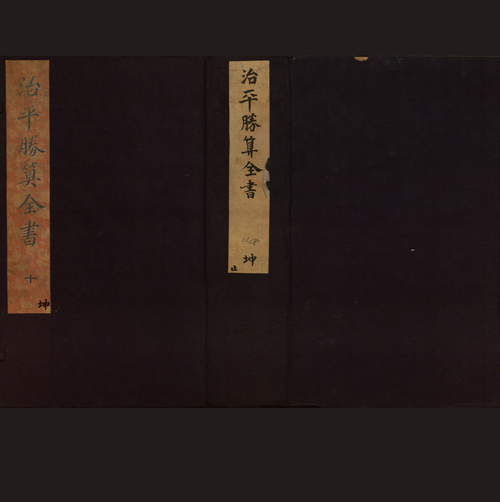 治平勝算全書
十
坤
治平勝算全書
坤